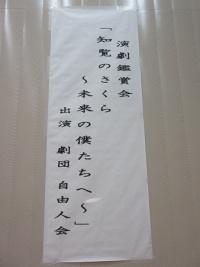 演劇鑑賞会
「知覧のさくら
～未来の僕たちへ～」
出演 劇団 自由人会